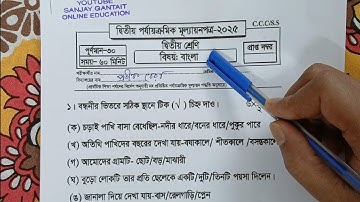 YOUTUBE
SANJAY GANTAIT
ONLINE EDUCATION
C.C.C/S.S
দ্বিতীয় পর্যায়ক্রমিক মূল্যায়নপত্র-২০২৫
পূর্ণমান-৩০
সময়- ৬০ মিনিট
দ্বিতীয় শ্রেণি
বিষয়: বাংলা
প্রাপ্ত নম্বর
১। বন্ধনীর ভিতরে সঠিক স্থানে টিক (√) চিহ্ন দাও।
(ক) চড়াই পাখি বাসা বেধেছিল-নদীর ধারে/বনের ধারে/পুকুর পারে
(খ) অতিথি পাখিদের বছরের দেখা যায়-বষাকালে/ শীতকালে /বসন্তকালে
(গ) আমেদের গ্রামটি- ছোট/বড়/মাঝারী
(ঘ) বুড়ো লোকটি তার প্রতি ছেলেকে একটি/দুটি/তিনটি পয়সা দিলেন।
(ঙ) জানালা দিয়ে দেখা যায়-বাস/রেলগাড়ি/প্লেন